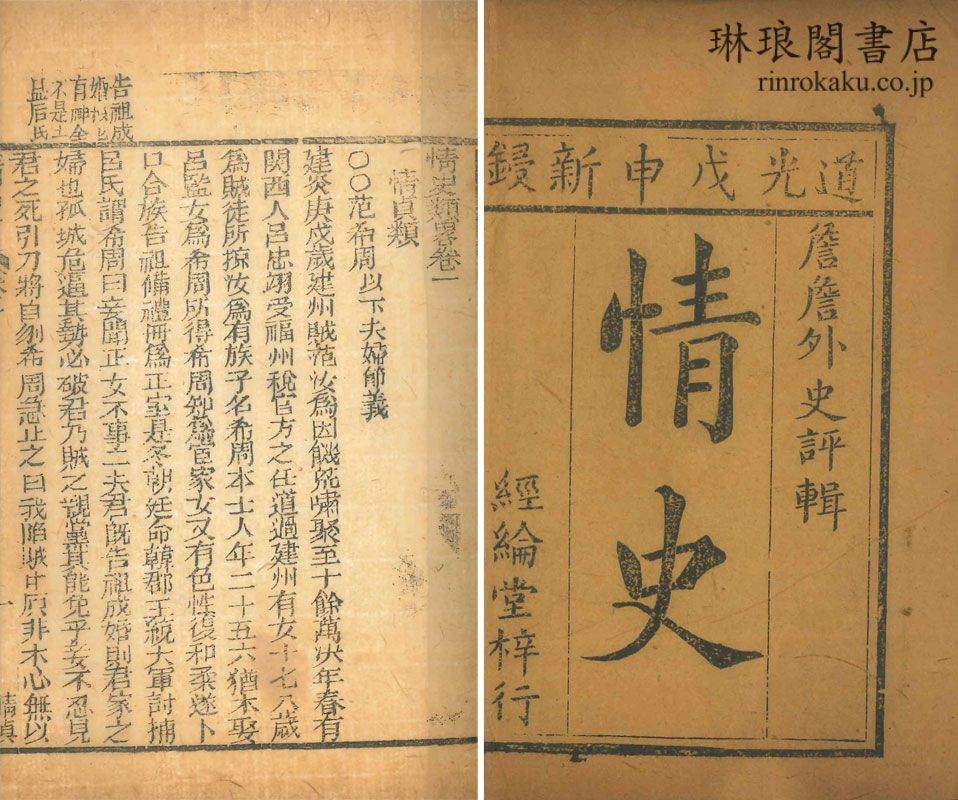 琳琅閣書店
rinrokaku.co.jp
道光戊申新鐫
詹詹外史評輯
情史
經綸堂梓行
情史類畧卷一
情貞類
○○范希周以下夫婦節義
告祖成
建炎庚戌歲建州賊范汝爲因饑荒嘯聚至十餘萬次年春有
關西人呂忠翊受福州稅官方之任道過建州有女十七八歲
爲賊徒所掠汝爲有族子名希周本士人年二十五六猶未娶
呂監女爲希周所得希周知爲宦家女又有色性復和柔遂卜
口合族告祖備禮冊爲正室是冬朝廷命韓郡王統大軍討捕
呂氏謂希周曰妾聞正女不事二夫君旣告祖成婚則君家之
婦也孤城危逼其勢必破君乃賊之親黨其能免乎妾不忍見
君之死引刀將自刎希周急止之曰我陷賊中原非本心無以
一
情貞